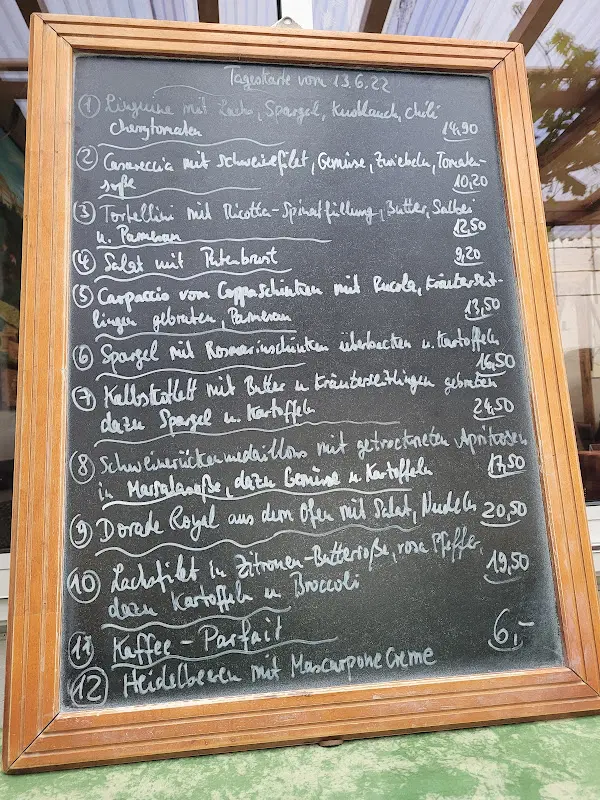 Tageskarte vom 13.6.22
① Linguine mit Lachs, Spargel, Knoblauch, Chili
Cherrytomaten 14,90
② Casareccia mit Schweinefilet, Gemüse, Zwiebeln, Tomaten-
soße 10,20
③ Tortellini mit Ricotta-Spinatfüllung, Butter, Salbei
u. Parmesan 12,50
④ Salat mit Putenbrust 9,20
⑤ Carpaccio vom Coppaschinken mit Rucola, Kräuterseit-
lingen gebraten, Parmesan 13,50
⑥ Spargel mit Rosmarinschinken überbacken u. Kartoffeln
16,50
⑦ Kalbskotlett mit Butter u Kräuterseitlingen gebraten
dazu Spargel u. Kartoffeln 24,50
⑧ Schweinerückenmedaillons mit getrockneten Aprikosen
in Marsalasoße, dazu Gemüse u Kartoffeln 17,50
⑨ Dorade Royal aus dem Ofen mit Salat, Nudeln 20,50
⑩ Lachsfilet in Zitronen-Buttersoße, rosa Pfeffer,
dazu Kartoffeln u Broccoli 19,50
⑪ Kaffee-Parfait 6,-
⑫ Heidelbeeren mit Mascarpone Creme